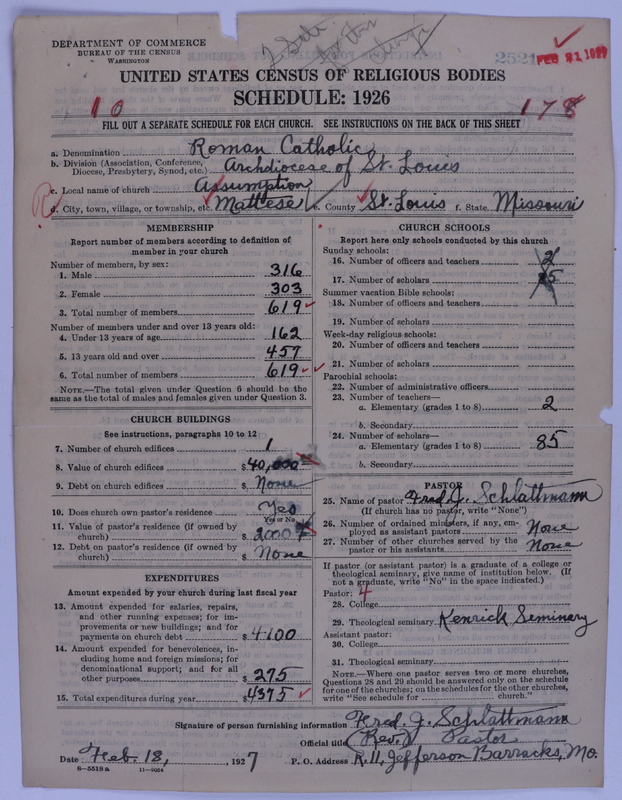 DEPARTMENT OF COMMERCE
BUREAU OF THE CENSUS
WASHINGTON
UNITED STATES CENSUS OF RELIGIOUS BODIES
SCHEDULE: 1926
10
178
FILL OUT A SEPARATE SCHEDULE FOR EACH CHURCH. SEE INSTRUCTIONS ON THE BACK OF THIS SHEET
a. Denomination Roman Catholic
b. Division (Association, Conference, Diocese, Presbytery, Synod, etc.) Archdiocese of St. Louis
c. Local name of church Assumption
d. City, town, village, or township, etc. Mattese e. County St. Louis f. State Missouri
MEMBERSHIP
Report number of members according to definition of
member in your church
Number of members, by sex:
1. Male 316
2. Female 303
3. Total number of members 619
Number of members under and over 13 years old:
4. Under 13 years of age 162
5. 13 years old and over 457
6. Total number of members 619
NOTE.—The total given under Question 6 should be
same as the total of males and females given under Question 3.
CHURCH BUILDINGS
See instructions, paragraphs 10 to 12
7. Number of church edifices 1
8. Value of church edifices $40,000
9. Debt on church edifices $ None
10. Does church own pastor's residence Yes
Yes or No
11. Value of pastor's residence (if owned by
church) $ 2000
12. Debt on pastor's residence (if owned by
church) $ None
EXPENDITURES
Amount expended by your church during last fiscal year
13. Amount expended for salaries, repairs,
and other running expenses; for im-
provements or new buildings; and for
payments on church debt $ 4100
14. Amount expended for benevolences, in-
cluding home and foreign missions; for
denominational support; and for all
other purposes $ 275
15. Total expenditures during year $ 4375
CHURCH SCHOOLS
Report here only schools conducted by this church
Sunday schools:
16. Number of officers and teachers 2
17. Number of scholars
Summer vacation Bible schools:
18. Number of officers and teachers
19. Number of scholars
Week-day religious schools:
20. Number of officers and teachers
21. Number of scholars
Parochial schools:
22. Number of administrative officers
23. Number of teachers—
a. Elementary (grades 1 to 8) 2
b. Secondary
24. Number of scholars—
a. Elementary (grades 1 to 8) 85
b. Secondary
PASTOR
25. Name of pastor Fred. J. Schlattmann
(If church has no pastor, write "None")
26. Number of ordained ministers, if any, em-
ployed as assistant pastors None
27. Number of other churches served by the
pastor or his assistants None
If pastor (or assistant pastor) is a graduate of a college or
theological seminary, give name of institution below. (If
not a graduate, write "No" in the space indicated.)
Pastor: 4
28. College
29. Theological seminary Kenrick Seminary
Assistant pastor:
30. College
31. Theological seminary
NOTE.—Where one pastor serves two or more churches,
Questions 28 and 29 should be answered only on the schedule
for one of the churches; on the schedules for the other churches,
write "See schedule for church."
Signature of person furnishing information Fred. J. Schlattmann
Official title (Rev.) Pastor
Date Feb. 18, 1927 P. O. Address R. 11, Jefferson Barracks, Mo.
8-5518a 11-9064